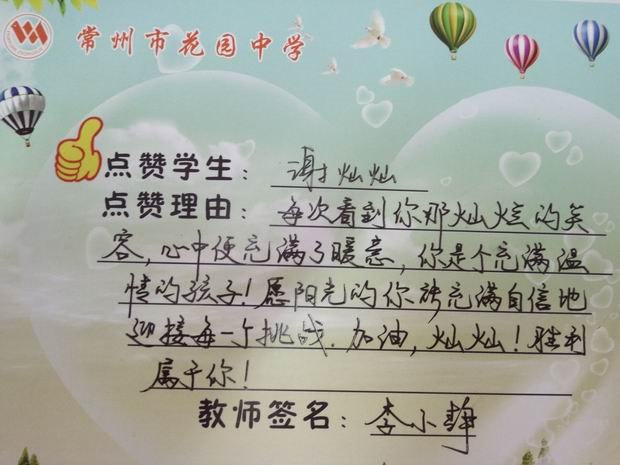 常州市花园中学
点赞学生：谢灿灿
点赞理由：每次看到你那灿烂的笑
容，心中便充满了暖意，你是个充满温
情的孩子！愿阳光的你能充满自信地
迎接每一个挑战．加油，灿灿！胜利
属于你！
教师签名：李小静